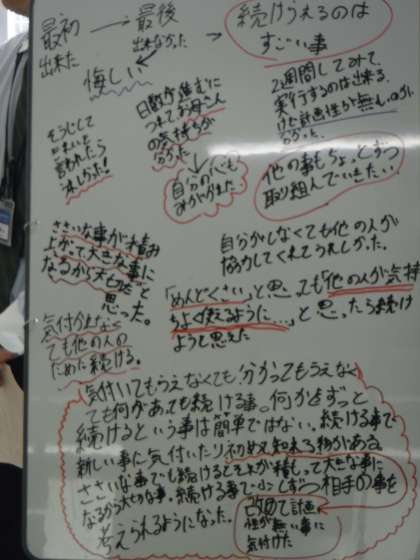 最初 → 最後
出来た
出来なかった
悔しい
続けられるのは
すごい事
日数が進むに
つれてお母さん
の気持ちが
分かった
自分の心も
みがかれた
2週間してみて、
実行するのは出来る。
けど計画性が無いのが
分かった。
他の事もちょっとずつ
取り組んでいきたい。
そうじして
きれいと
言われたら
うれしかった!
ささいな事が積み
上がって大きな事に
なるから大切だと
思った。
自分がしなくても他の人が
協力してくれてうれしかった。
「めんどくさい」と思っても「他の人が気持
ちよく使えるように…」と思ったら続け
ようと思えた
気付かれなく
ても他の人の
ために続ける。
気付いてもらえなくても、分かってもらえなく
ても何があっても続ける事。何かをずっと
続けるという事は簡単ではない。続ける事で
新しい事に気付いたり初めて知れる物がある。
ささいな事でも続けるとそれが積もって大きな事に
なるから大切な事。続ける事で少しずつ相手の事を
考えられるようになった。
改めて計画
性が無い事に
気付けた